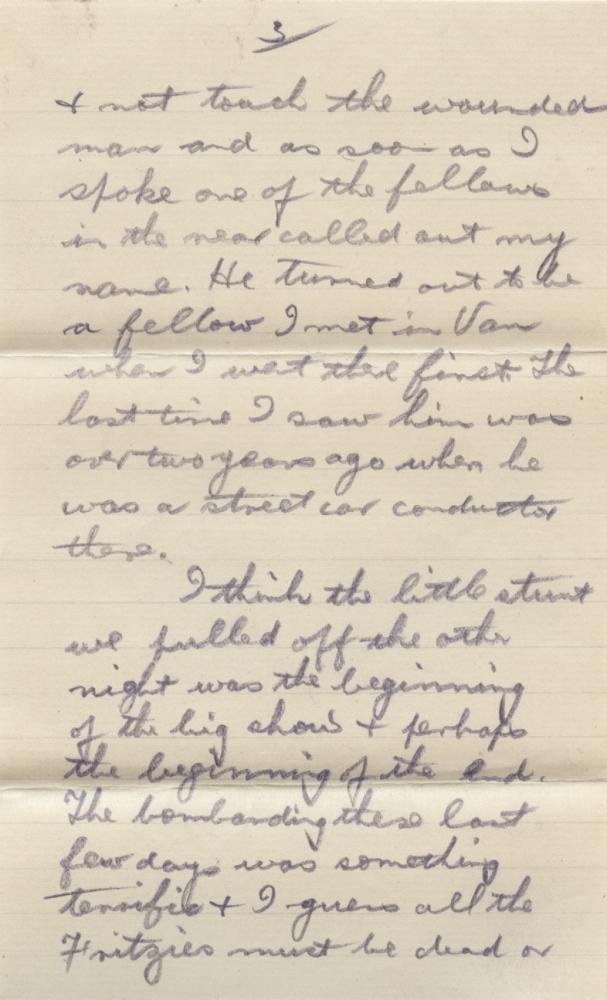 3
& not touch the wounded
man and as soon as I
spoke one of the fellows
in the near called out my
name. He turned out to be
a fellow I met in Van
when I went there first. The
last time I saw him was
over two years ago when he
was a street car conductor
there.
I think the little stunt
we pulled off the other
night was the beginning
of the big show & perhaps
the beginning of the end.
The bombarding these last
few days was something
terrific & I guess all the
Fritzies must be dead or